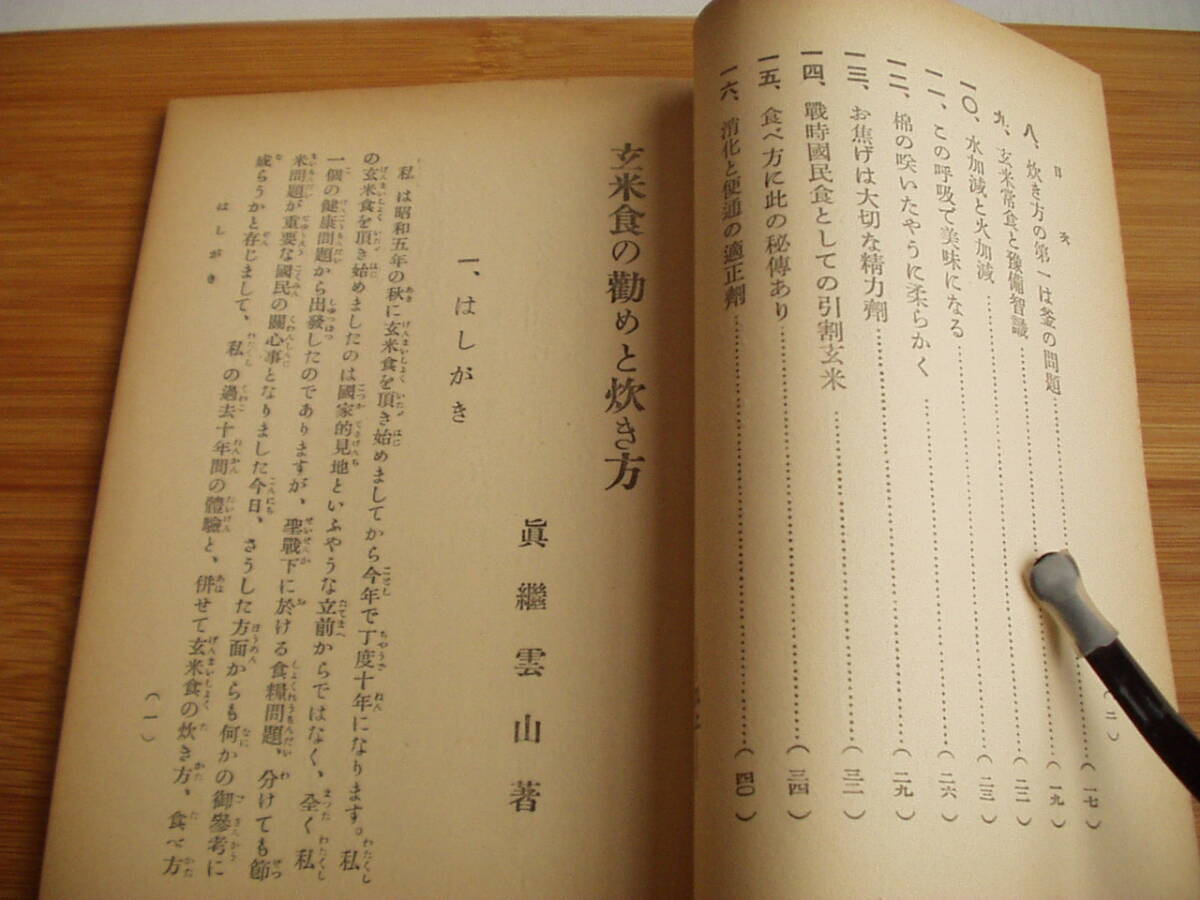 目次
(二)
八、炊き方の第一は釜の問題……(一七)
九、玄米常食と豫備智識……(一九)
一〇、水加減と火加減……(二二)
一一、この呼吸で美味になる……(二三)
一二、棉の咲いたやうに柔らかく……(二六)
一三、お焦げは大切な精力劑……(二九)
一四、戰時國民食としての引割玄米……(三二)
一五、食べ方に此の秘傳あり……(三四)
一六、消化と便通の適正劑……(四〇)
玄米食の勸めと炊き方
眞繼雲山著
一、はしがき
私は昭和五年の秋に玄米食を頂き始めましてから今年で丁度十年になります。私
の玄米食を頂き始めましたのは國家的見地といふやうな立前からではなく、全く私
一個の健康問題から出發したのでありますが、聖戰下に於ける食糧問題、分けても節
米問題が重要な國民の關心事となりました今日、さうした方面からも何かの御參考に
成らうかと存じまして、私の過去十年間の體驗と、併せて玄米食の炊き方、食べ方
はしがき
(一)